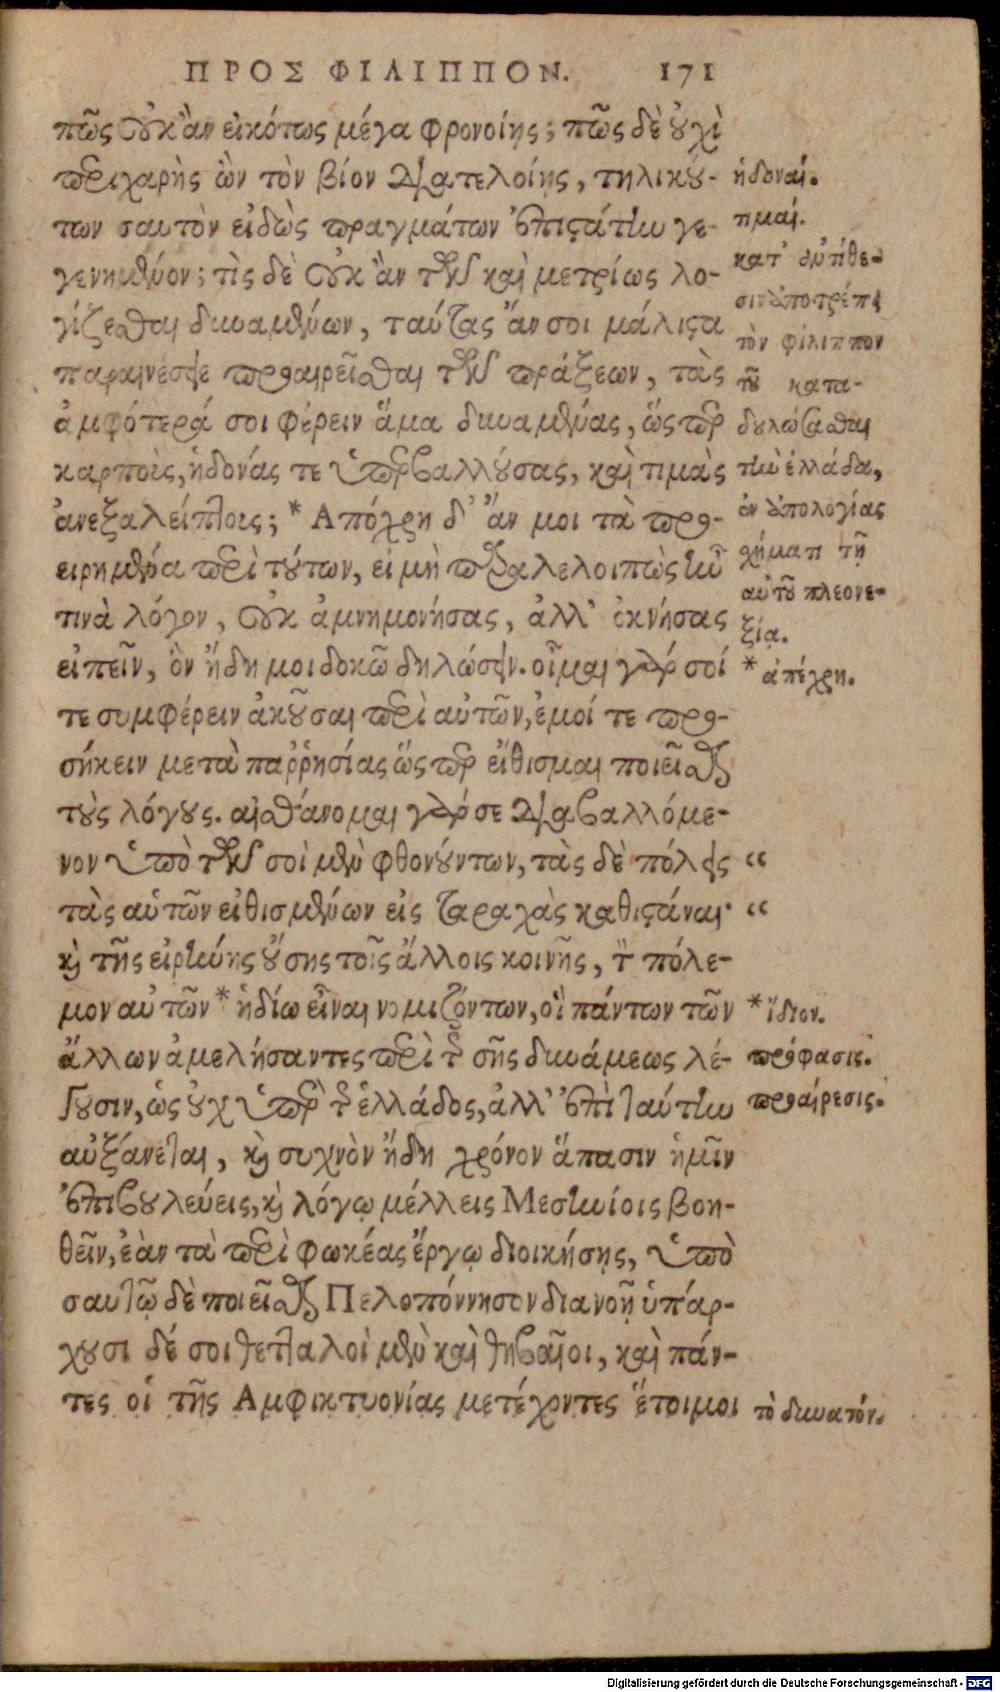 ΠΡΟΣ ΦΙΛΙΠΠΟΝ. 171
πῶς οὐκ ἂν εἰκότως μέγα φρονοίης; πῶς δὲ οὐχὶ
περιχαρὴς ὢν τὸν βίον διατελοίης, τηλικού-
των σαυτὸν εἰδὼς πραγμάτων ἐπιστάτην γε-
γενημένον; τὶς δὲ οὐκ ἂν τῶν καὶ μετρίως λο-
γίζεσθαι δυναμένων, ταύτας ἄν σοι μάλιστα
παραινέσειε προαιρεῖσθαι τῶν πράξεων, τὰς
ἀμφότερά σοι φέρειν ἅμα δυναμένας, ὥσπερ
καρποὺς, ἡδονάς τε ὑπερβαλλούσας, καὶ τιμὰς
ἀνεξαλείπτοις; * Απόχρη δ' ἄν μοι τὰ προ-
ειρημένα περὶ τούτων, εἰ μὴ παραλελοιπὼς ἦν
τινὰ λόγον, οὐκ ἀμνημονήσας, ἀλλ' ὀκνήσας
εἰπεῖν, ὃν ἤδη μοι δοκῶ δηλώσειν. οἶμαι γάρ σοί
τε συμφέρειν ἀκοῦσαι περὶ αὐτῶν, ἐμοί τε προ-
σήκειν μετὰ παῤῥησίας ὥσπερ εἴθισμαι ποιεῖσθαι
τοὺς λόγους. αἰσθάνομαι γάρ σε διαβαλλόμε-
νον ὑπὸ τῶν σοὶ μὲν φθονούντων, τὰς δὲ πόλεις “
τὰς αὑτῶν εἰθισμένων εἰς ταραχὰς καθιστάναι· “
καὶ τῆς εἰρήνης οὔσης τοῖς ἄλλοις κοινῆς, τὸν πόλε-
μον αὐτῶν * ἡδίω εἶναι νομιζόντων, οἳ πάντων τῶν
ἄλλων ἀμελήσαντες περὶ τῆς σῆς δυνάμεως λέ-
γουσιν, ὡς οὐχ ὑπὲρ τῆς ἑλλάδος, ἀλλ' ἐπὶ ταύτην
αὐξάνεται, καὶ συχνὸν ἤδη χρόνον ἅπασιν ἡμῖν
ἐπιβουλεύεις, καὶ λόγῳ μέλλεις Μεσηνίοις βοη-
θεῖν, ἐὰν τὰ περὶ φωκέας ἔργῳ διοικήσῃς, ὑπὸ
σαυτῷ δὲ ποιεῖσθαι Πελοπόννησον διανοῇ ὑπάρ-
χουσι δέ σοι θετταλοὶ μὲν καὶ θηβαῖοι, καὶ πάν-
τες οἱ τῆς Αμφικτυονίας μετέχοντες ἕτοιμοι
ἡδοναί.
τιμαί.
κατ' ἀντίθε-
σιν ἀποτρέπει
τὸν φίλιππον
τοῦ κατα-
δουλώσασθαι
τὴν ἑλλάδα,
ἐν ἀπολογίας
σχήματι τῇ
αὐτοῦ πλεονε-
ξίᾳ.
* ἀπέχρη.
* ἴδιον.
πρόφασις.
προαίρεσις.
τὸ δυνατόν.
Digitalisierung gefördert durch die Deutsche Forschungsgemeinschaft - DFG